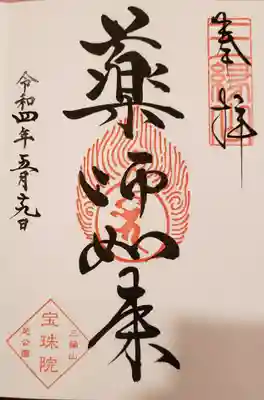 奉拝
薬師如来
令和四年五月日
三縁山
宝珠院
芝公園